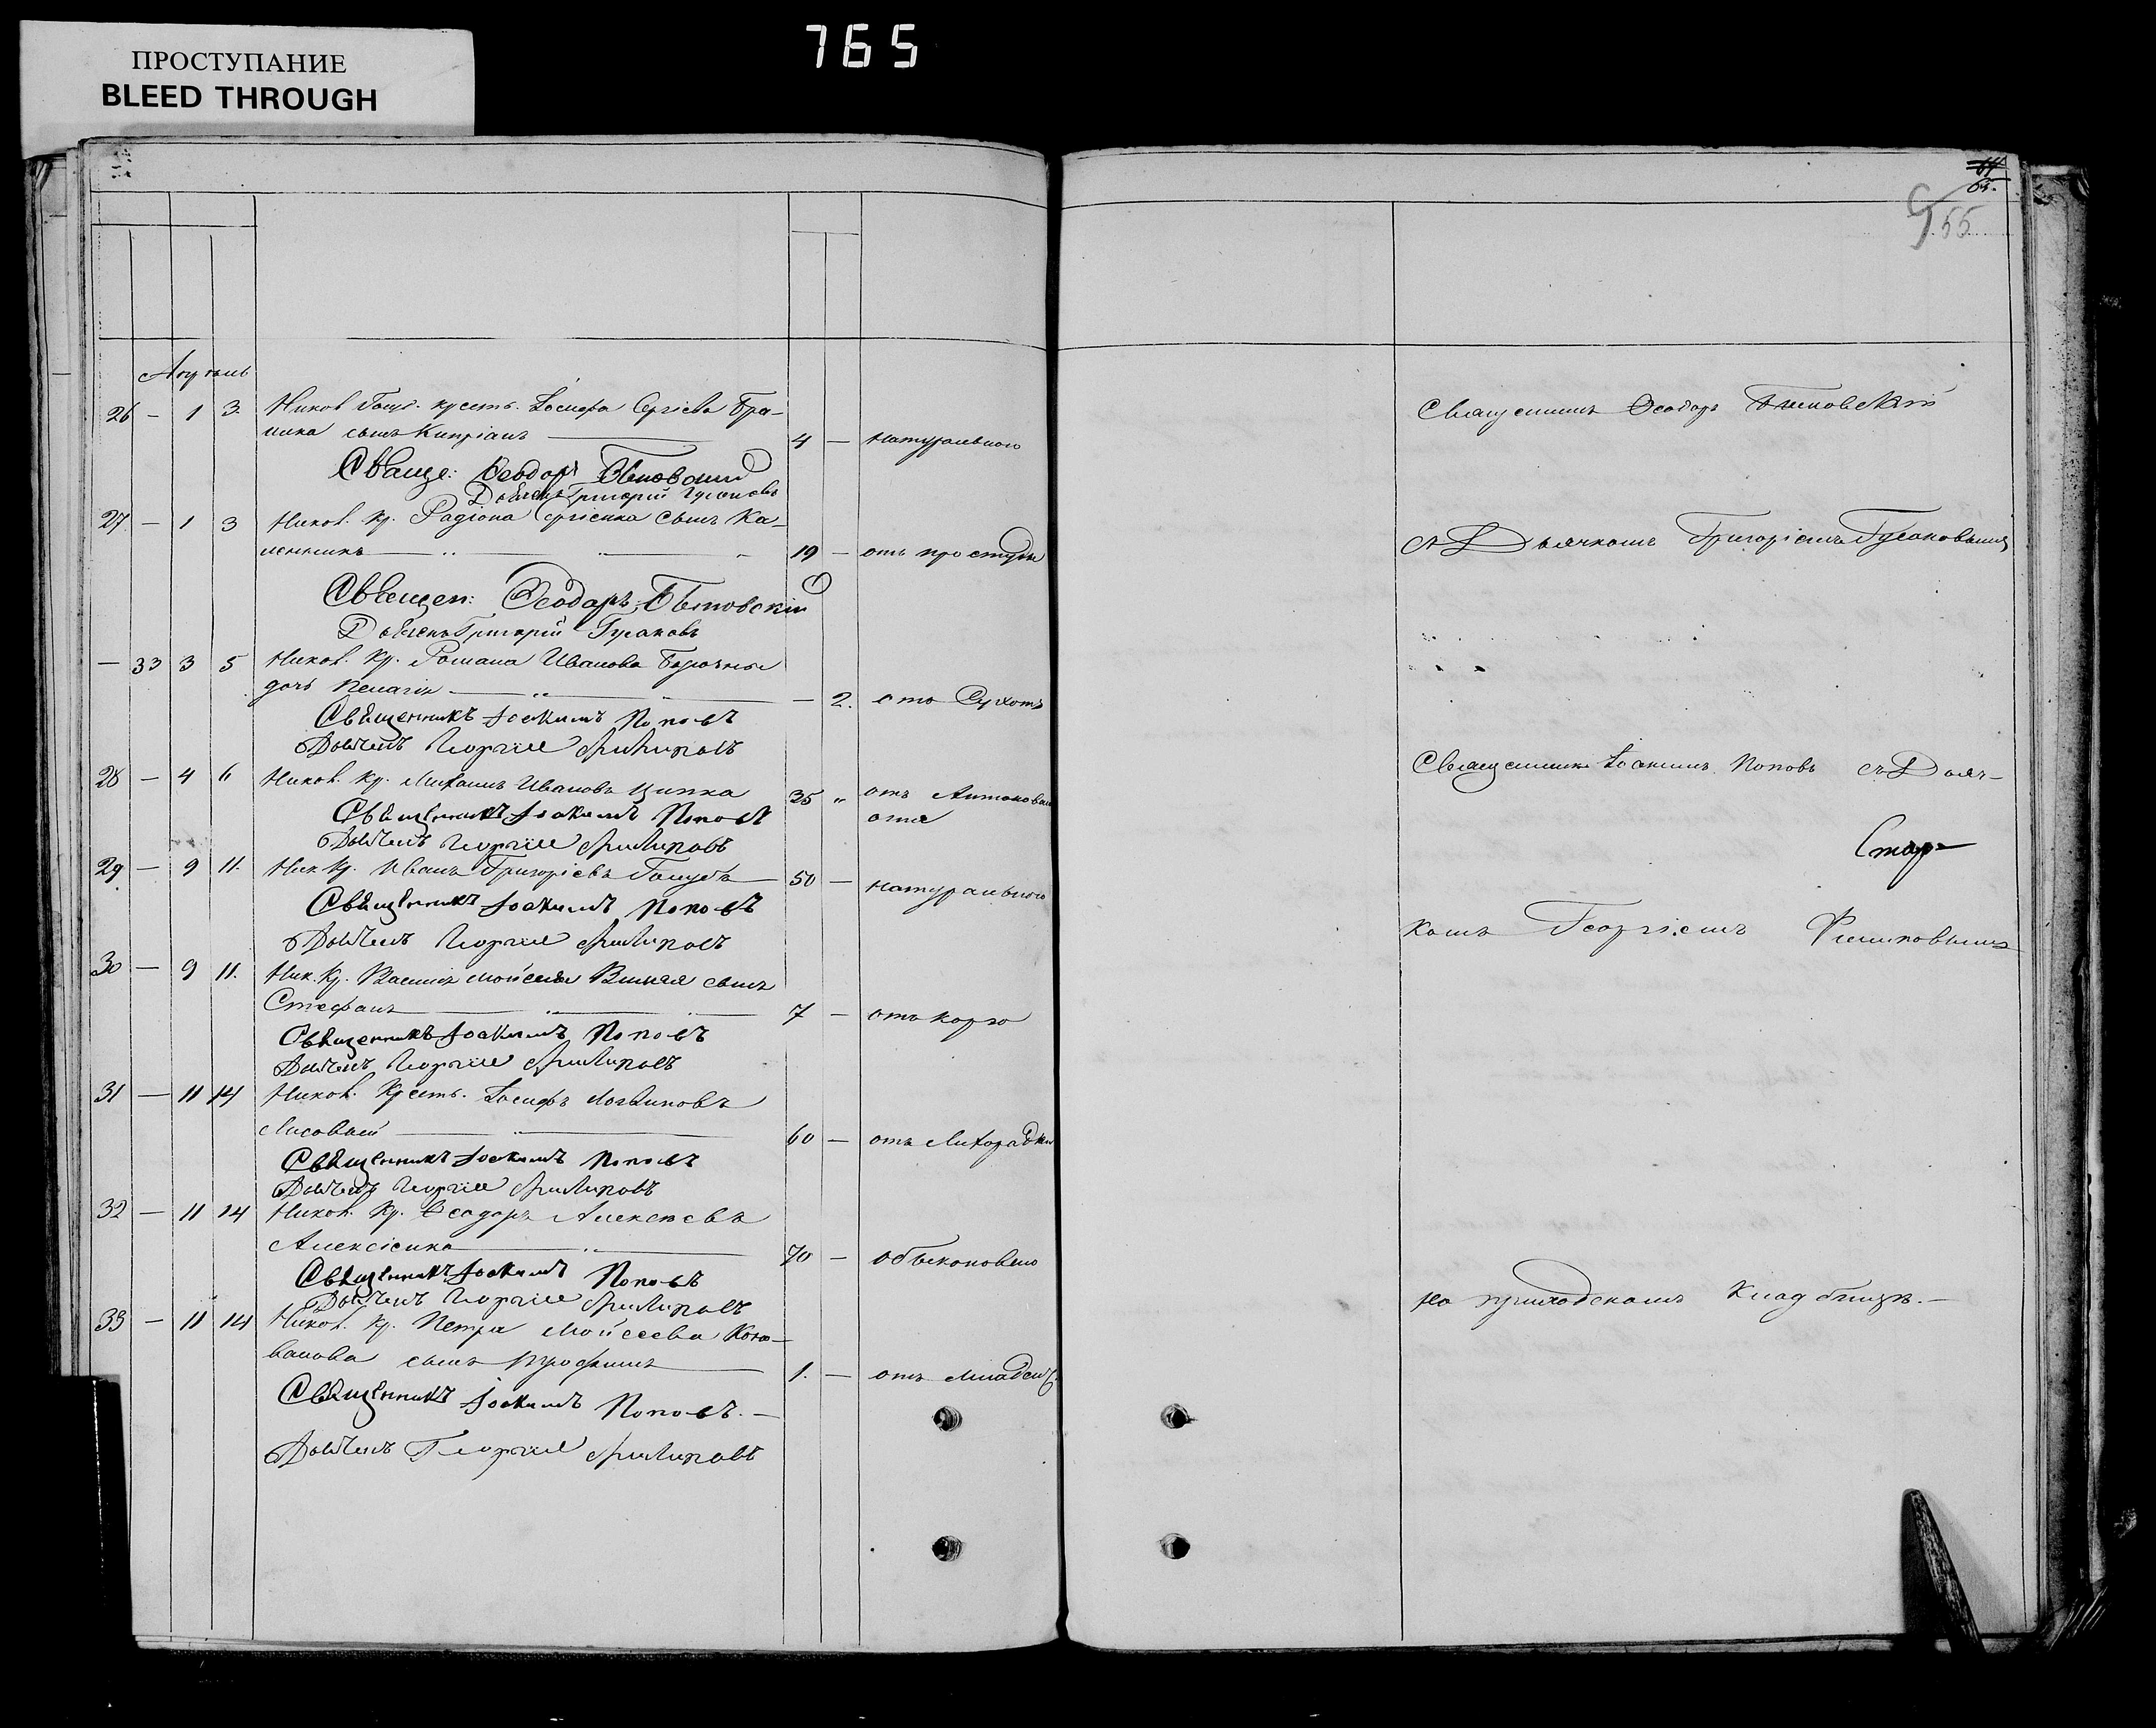 765
ПРОСТУПАНИЕ
BLEED THROUGH
64
65.
55
Апрѣль
26 — 1 3 Ников. крест. Іосифа Сергіева
сынъ Кипріанъ — 4 — натурального
Священ: Ѳеодоръ
Дьячекъ Григорій Гусаковъ
27. — 1 3 Ников. Кр. Радіона Сергіенка сынъ Ка-
— 19 — отъ простуды
Священ: Ѳеодоръ
Дьячекъ Григорій Гусаковъ
— 33 3 5 Ников. Кр. Романа Иванова
дочь Пелагія — — 2. отъ Сухотъ
Священникъ Іоакимъ Поповъ
Дьячекъ Георгій Филиповъ
28 — 4 6 Ников. Кр. Михаилъ Ивановъ Ципка 35 „ отъ Антонова
огня
Священникъ Іоакимъ Поповъ
Дьячекъ Георгій Филиповъ
29 — 9 11. Ник. Кр. Иванъ Григорьевъ Голубъ 50 — натурального
Священникъ Іоакимъ Поповъ
Дьячекъ Георгій Филиповъ
30 — 9 11. Ник. Кр. Василія Мойсеева сынъ
Стефанъ — 7 — отъ корю
Священникъ Іоакимъ Поповъ
Дьячекъ Георгій Филиповъ
31 — 11 14 Ников. Крест. Іосифъ Логвиновъ
Лисовый — 60 — отъ Лихорадки
Священникъ Іоакимъ Поповъ
Дьячекъ Георгій Филиповъ
32 — 11 14 Ников. Кр. Ѳеодоръ Алексѣевъ
Алексіенко — 70 — обыкновено
Священникъ Іоакимъ Поповъ
Дьячекъ Георгій Филиповъ
33 — 11 14 Ников. Кр. Петра Мойсеева Коно-
валова сынъ Трофимъ — 1. — отъ Младен.
Священникъ Іоакимъ Поповъ. —
Дьячекъ Георгій Филиповъ
Священникъ Ѳеодоръ
съ Дьячкомъ Григоріемъ Гусаковымъ
Священникъ Іоакимъ Поповъ съ Дьяч-
Стар-
комъ Георгіемъ Филиповымъ
на приходскомъ кладбищѣ. —